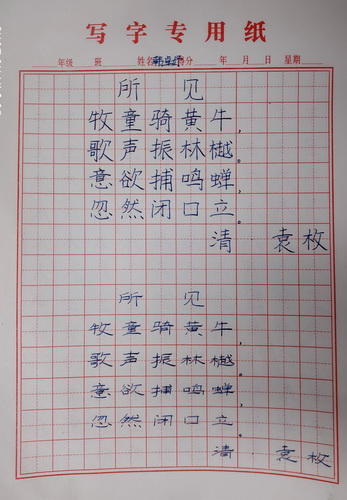 写字专用纸
年级 班 姓名 得分 年 月 日 星期
所 见
牧童骑黄牛，
歌声振林樾。
意欲捕鸣蝉，
忽然闭口立。
清 袁枚
所 见
牧童骑黄牛，
歌声振林樾。
意欲捕鸣蝉，
忽然闭口立。
清 袁枚